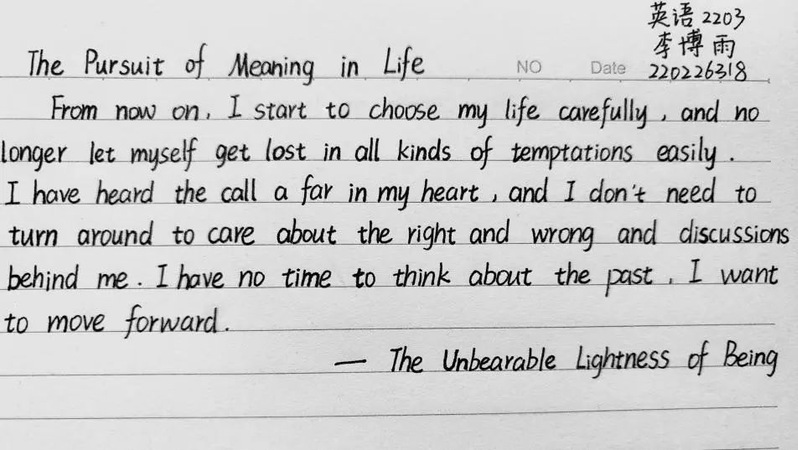 英语 2203
李博雨
220226318
The Pursuit of Meaning in Life
NO Date
From now on, I start to choose my life carefully, and no
longer let myself get lost in all kinds of temptations easily.
I have heard the call a far in my heart, and I don't need to
turn around to care about the right and wrong and discussions
behind me. I have no time to think about the past, I want
to move forward.
— The Unbearable Lightness of Being